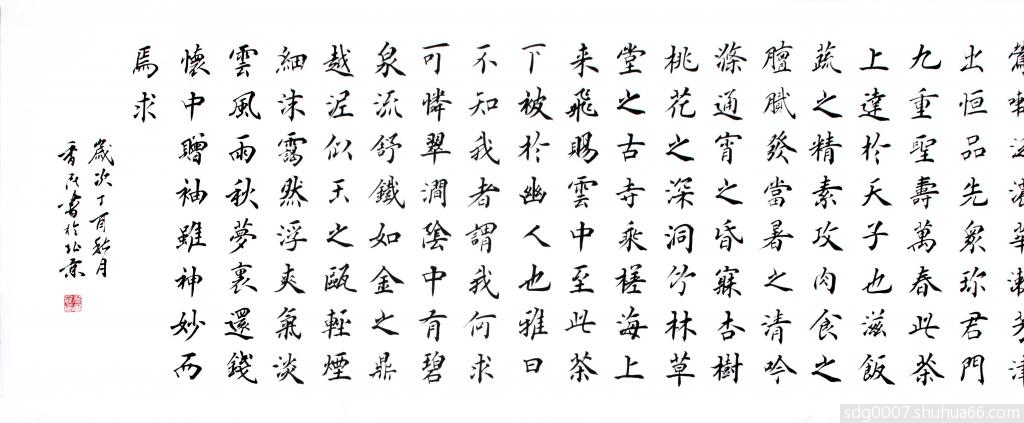 出恒品先衆珍君門
九重聖壽萬春此茶
上達於天子也滋飯
蔬之精素攻肉食之
膻膩發當暑之清吟
滌通宵之昏寐杏樹
桃花之深洞竹林草
堂之古寺乘槎海上
来飛賜雲中至此茶
下被於幽人也雅曰
不知我者謂我何求
可憐翠澗陰中有碧
泉流舒鐵如金之鼎
越泥似玉之甌輕煙
細沫靄然浮爽氣淡
雲風雨秋夢裏還錢
懷中贈袖雖神妙而
焉求
歲次丁酉秋月
書於北京
sdg0007.shuhua66.com